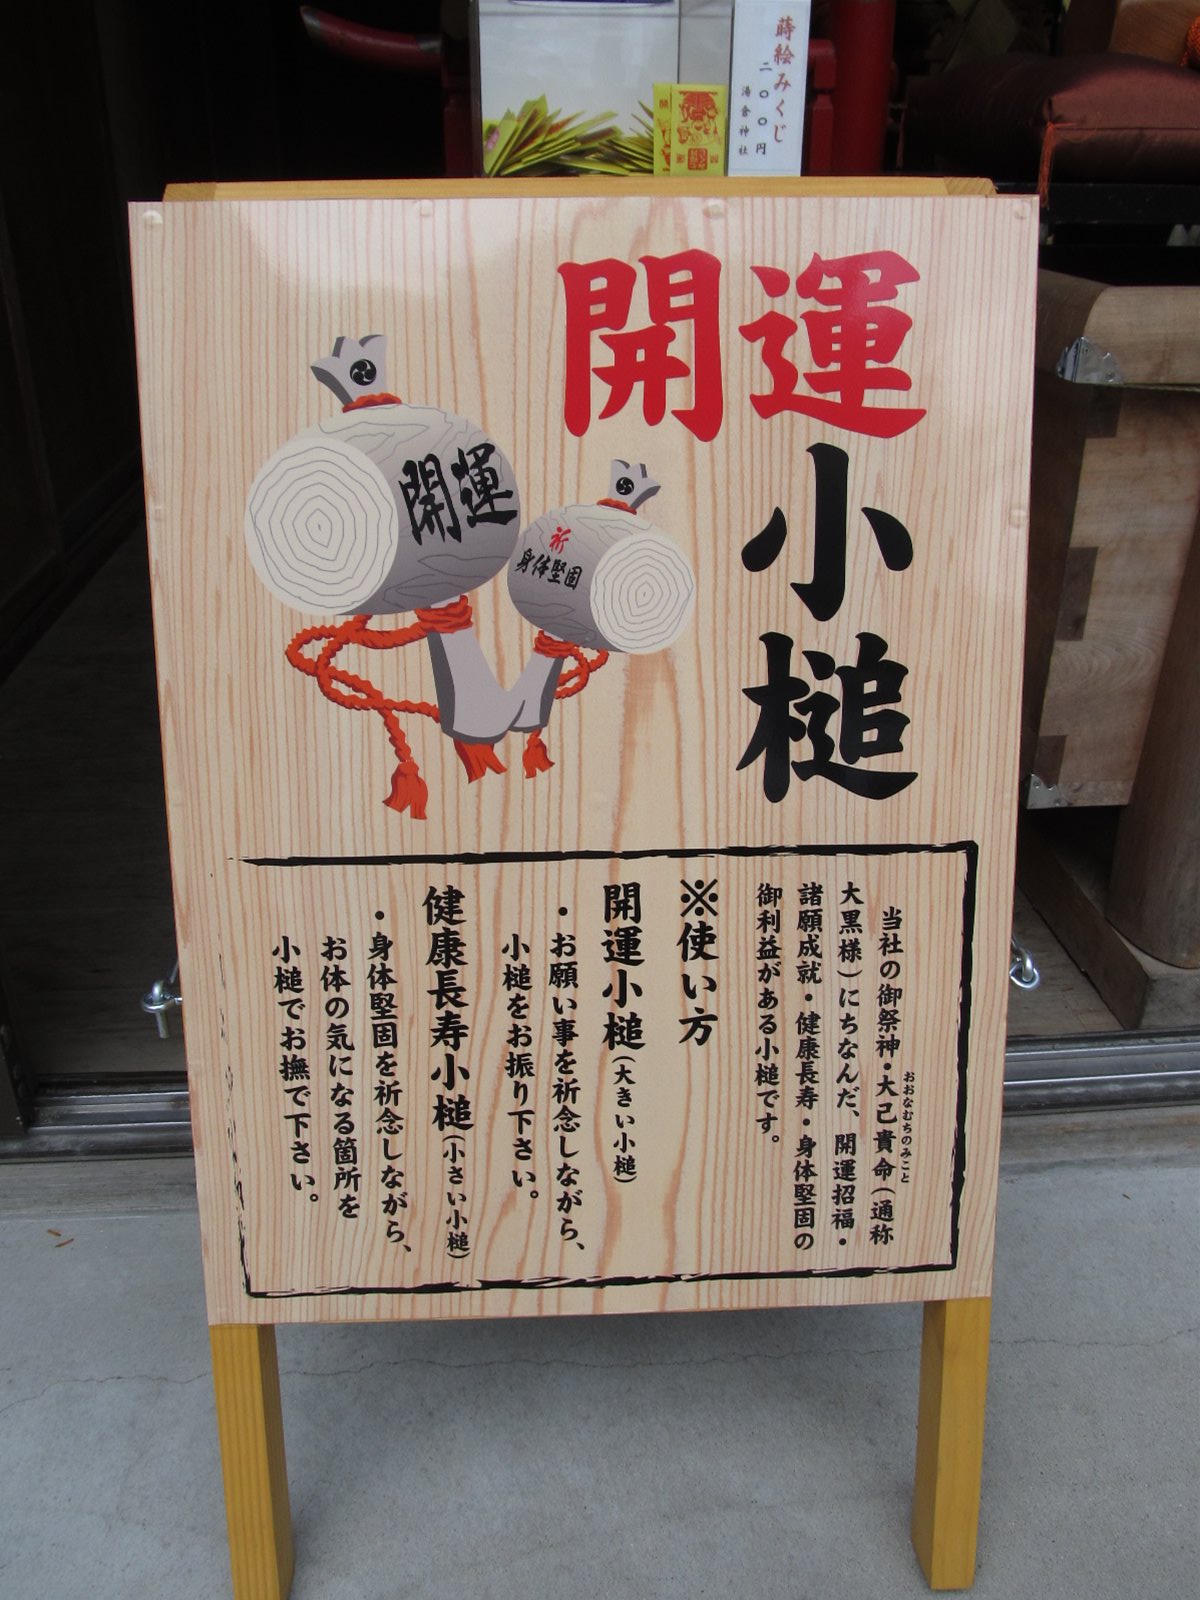 蒔絵みくじ
二〇〇円
湯倉神社
開運
小槌
開運
祈
身体堅固
当社の御祭神・大己貴命(通称
おおなむちのみこと
大黒様)にちなんだ、開運招福・
諸願成就・健康長寿・身体堅固の
御利益がある小槌です。
※使い方
開運小槌(大きい小槌)
・お願い事を祈念しながら、
小槌をお振り下さい。
健康長寿小槌(小さい小槌)
・身体堅固を祈念しながら、
お体の気になる箇所を
小槌でお撫で下さい。